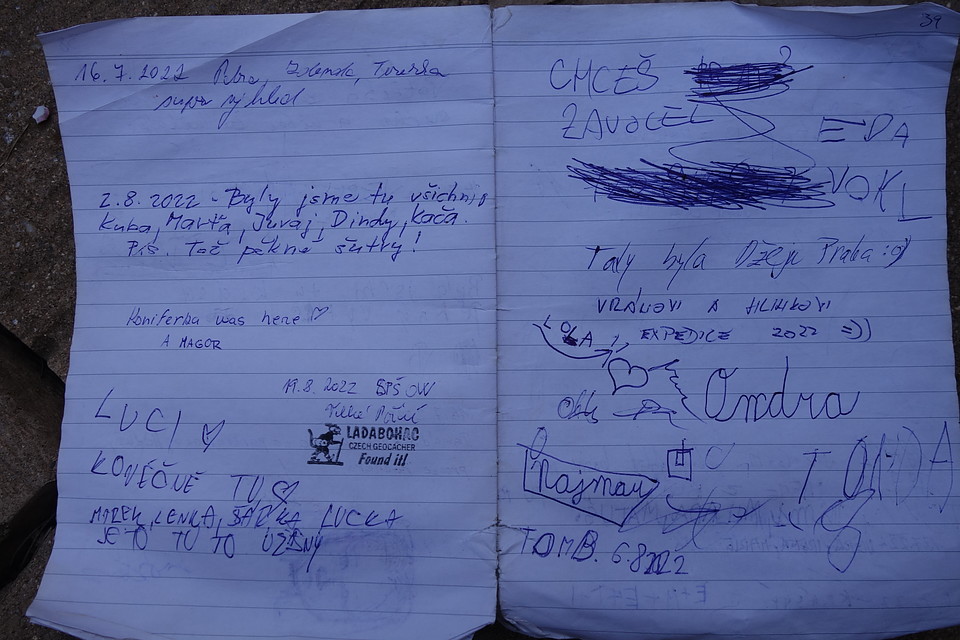 16.7.2022 Petra, Zdenda, Terezka
super výhled
2.8.2022 - Byly jsme tu všichni
Kuba, Marťa, Juraj, Dindy, Kača.
P.S. Toč pěkné šutry!
Koniferka was here ♡
A MAGOR
19.8.2022 SPŠ OW
LUCI ♡
LADABOHAC
CZECH GEOCACHER
Found it!
KONĚČNĚ TU ♡
MAREK, LENKA, ŠÁRKA LUCKA
JE TO TU TO ÚŽASNÝ
39
CHCEŠ ?
ZAVOCEL
EDA
VOKL
Tady byla Džejn Praha :o)
VRÁNOVI A HLINKOVI
EXPEDICE 2022 =))
♡
Ondra
Najman
TONDA
TOMB. 6.8.2022